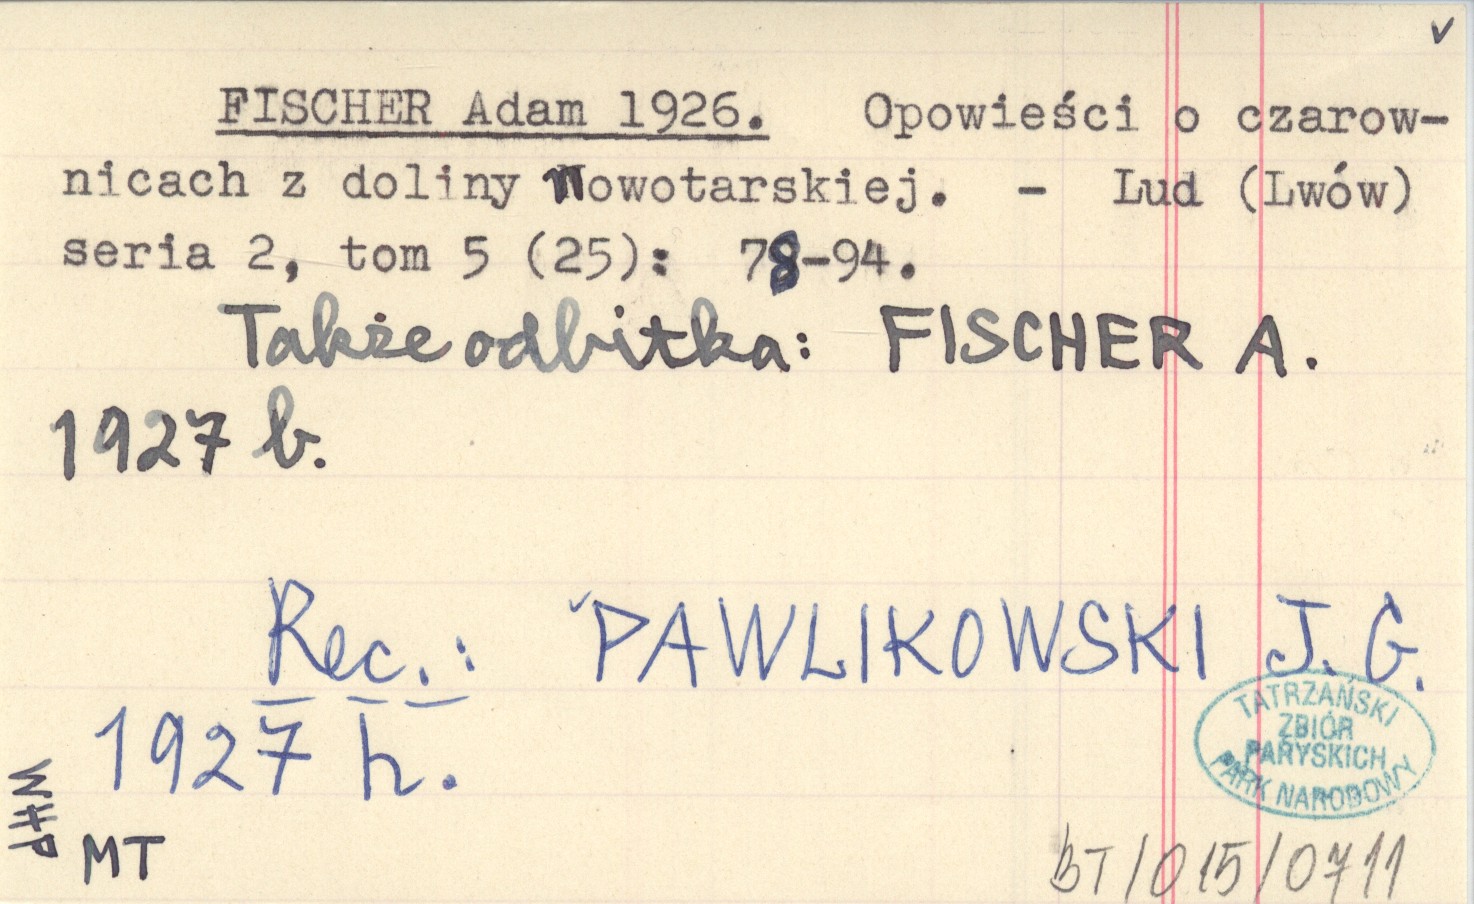 ✓
FISCHER Adam 1926. Opowieści o czarow-
nicach z doliny Nowotarskiej. - Lud (Lwów)
seria 2, tom 5 (25): 78-94.
Także odbitka: FISCHER A.
1927 b.
Rec.: ✓PAWLIKOWSKI J. G.
1927 h.
TATRZAŃSKI
ZBIÓR
PARYSKICH
PARK NARODOWY
WHP
MT
BT/015/0711